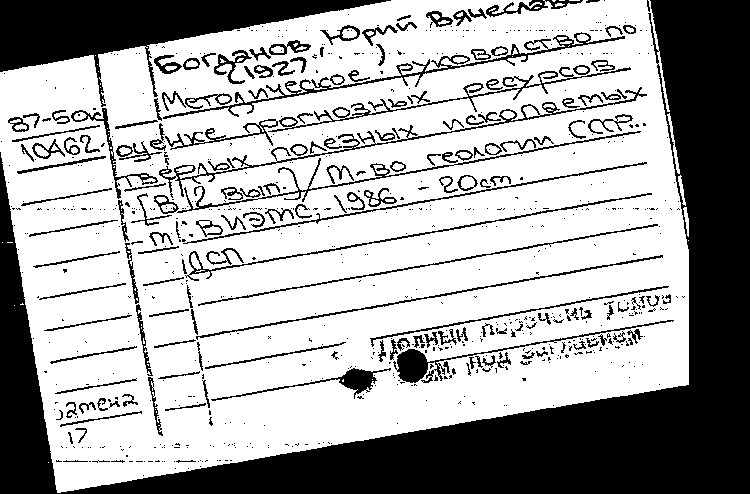 Богданов, Юрий Вячеславо
(1927 ).
Методическое руководство по
87-50к
10462
оценке прогнозных ресурсов
твердых полезных ископаемых
[В 12 вып.] / М-во геологии СССР..
- м : ВИЭМС, - 1986. - 20 см.
ДСП.
Полный перечень томов
см. под заглавием
замена
17